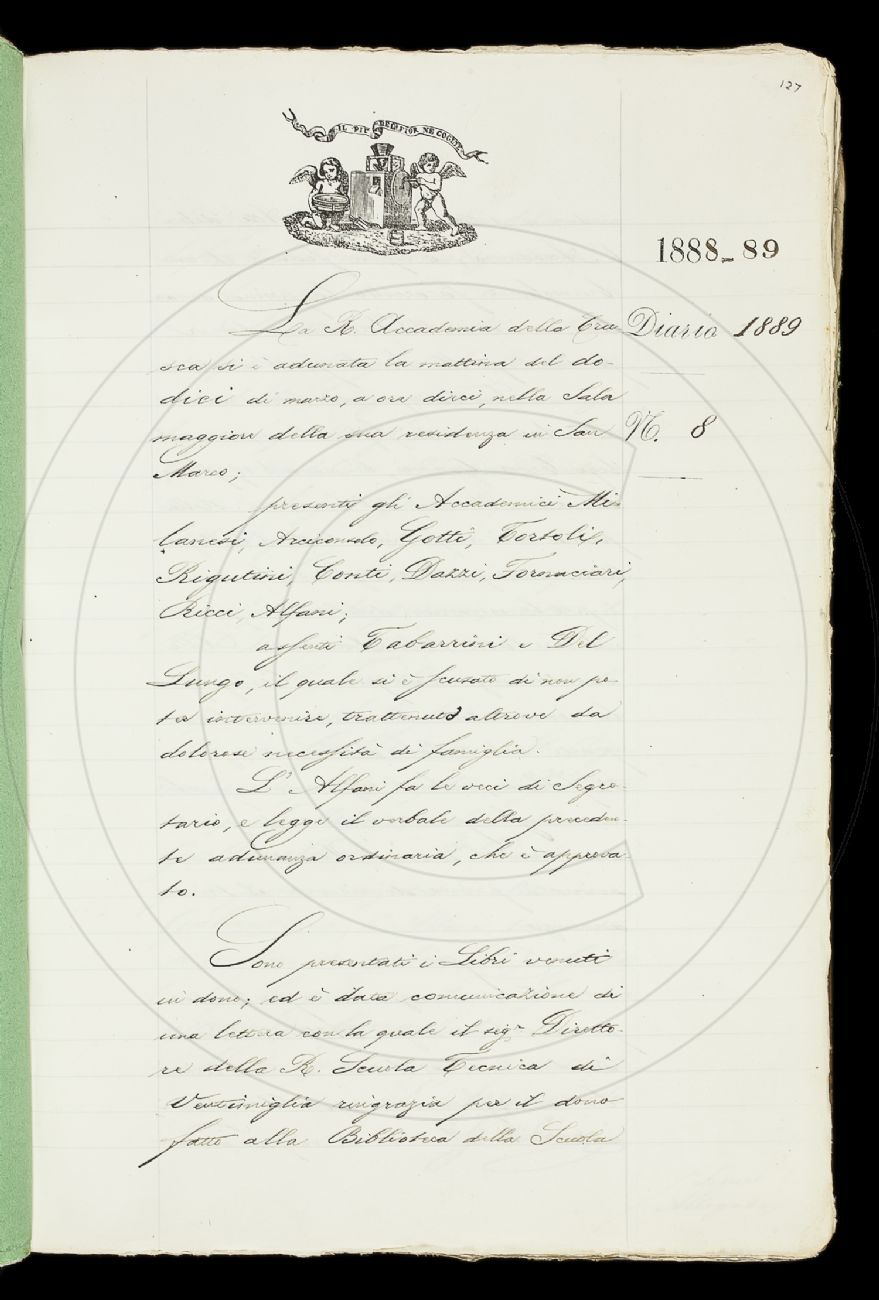 127
IL PIÙ BEL FIOR NE COGLIE
1888-89
La R. Accademia della Cru-
sca si è adunata la mattina del do-
dici di marzo, a ore dieci, nella Sala
maggiore della sua residenza in San
Marco;
Diario 1889
N. 8
presenti gli Accademici Mi-
lanesi, Arciconsolo, Gotti, Tortoli,
Rigutini, Conti, Dazzi, Fornaciari,
Ricci, Alfani;
assenti Tabarrini e Del
Lungo, il quale si è scusato di non po-
ter intervenire, trattenuto altrove da
dolorose necessità di famiglia.
L'Alfani fa le veci di Segre-
tario, e legge il verbale della preceden-
te adunanza ordinaria, che è approva-
to.
Sono presentati i Libri venuti
in dono; ed è data comunicazione di
una lettera con la quale il sigr. Diretto-
re della R. Scuola Tecnica di
Ventimiglia ringrazia per il dono
fatto alla Biblioteca della Scuola